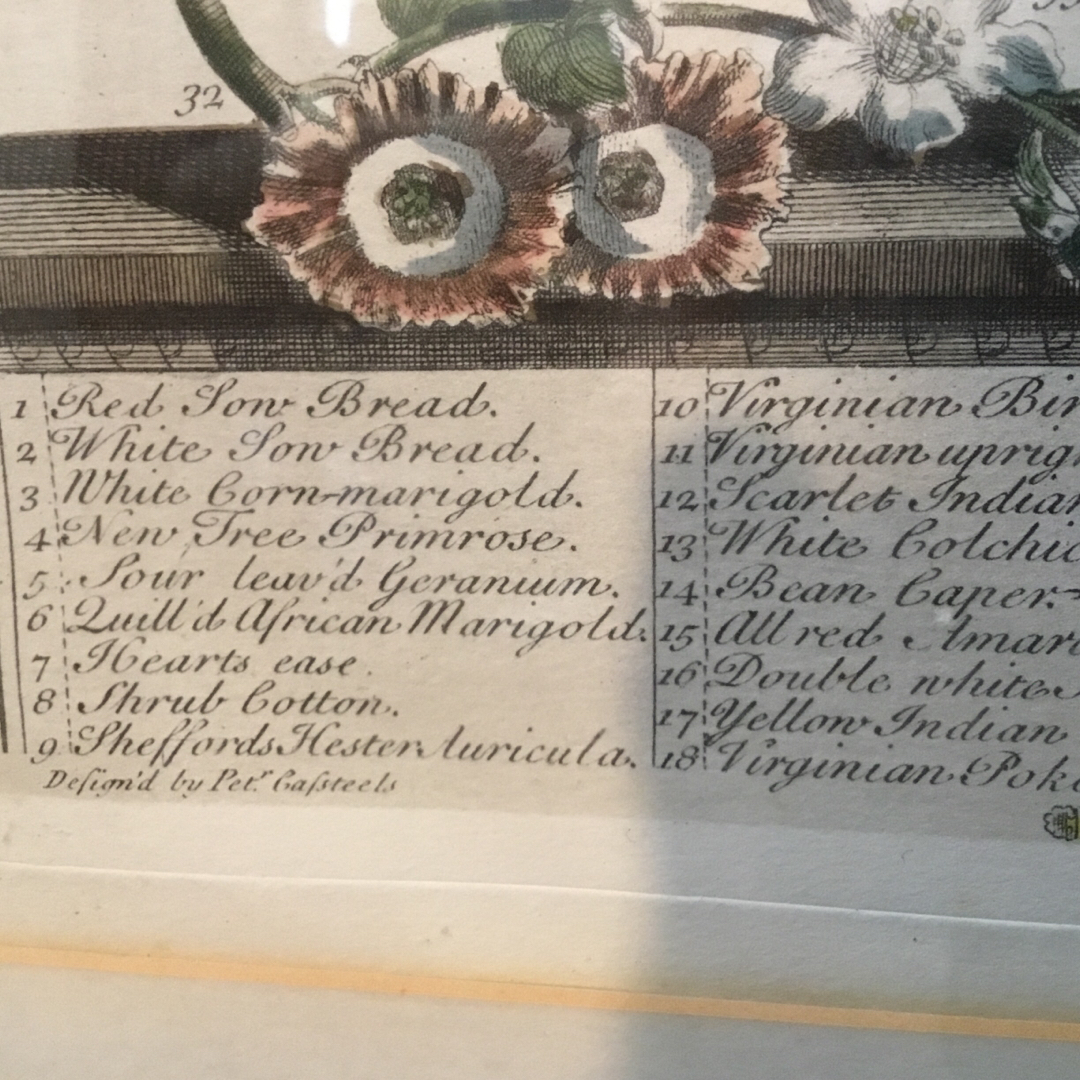 32
1 Red Sow Bread.
2 White Sow Bread.
3 White Corn-marigold.
4 New Tree Primrose.
5 Sour leav'd Geranium.
6 Quill'd African Marigold.
7 Hearts ease.
8 Shrub Cotton.
9 Sheffords Hester Auricula.
10 Virginian Bir
11 Virginian uprig
12 Scarlet Indian
13 White Colchic
14 Bean Caper
15 All red Amar
16 Double white
17 Yellow Indian
18 Virginian Poke
Deſign'd by Pet.r Caſteels